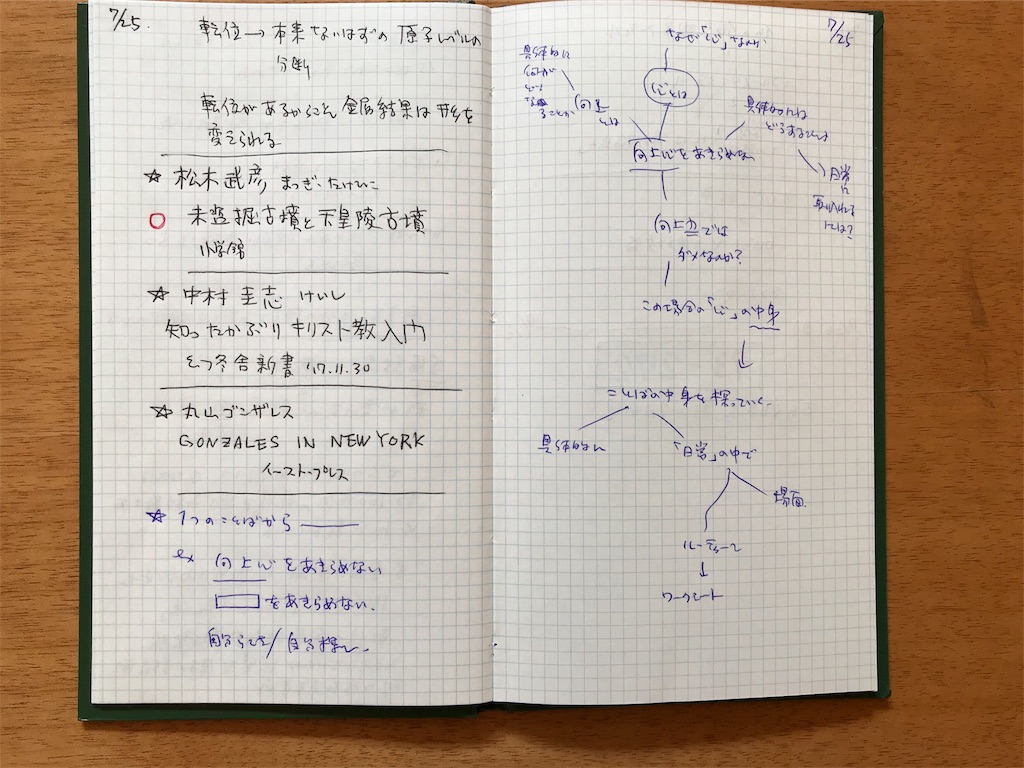 7/25.
転位→本来ないはずの原子レベルの
分断
転位があるからこそ金属結果は形を
変えられる
☆ 松木武彦 まつぎ・たけひこ
○ 未盗掘古墳と天皇陵古墳
小学館
☆ 中村圭志 けいし
知ったかぶりキリスト教入門
とう冬舎新書 '17.11.30
☆ 丸山ゴンザレス
GONZALES IN NEW YORK
イースト・プレス
☆ 1つのことばから
ex 向上心をあきらめない
をあきらめない.
自分らしさ/自分探し.
7/25
なぜ「心」なのか
心とは
具体的に
何が
向上
とは
具体的には
どうすることか
向上心をあきらめない
日常
に
取り入れる
には?
向上力では
ダメなのか?
この場合の「心」の中身
ことばの中身を探っていく
具体的に
「日常」の中で
場面
ルーティーン
ワークシート